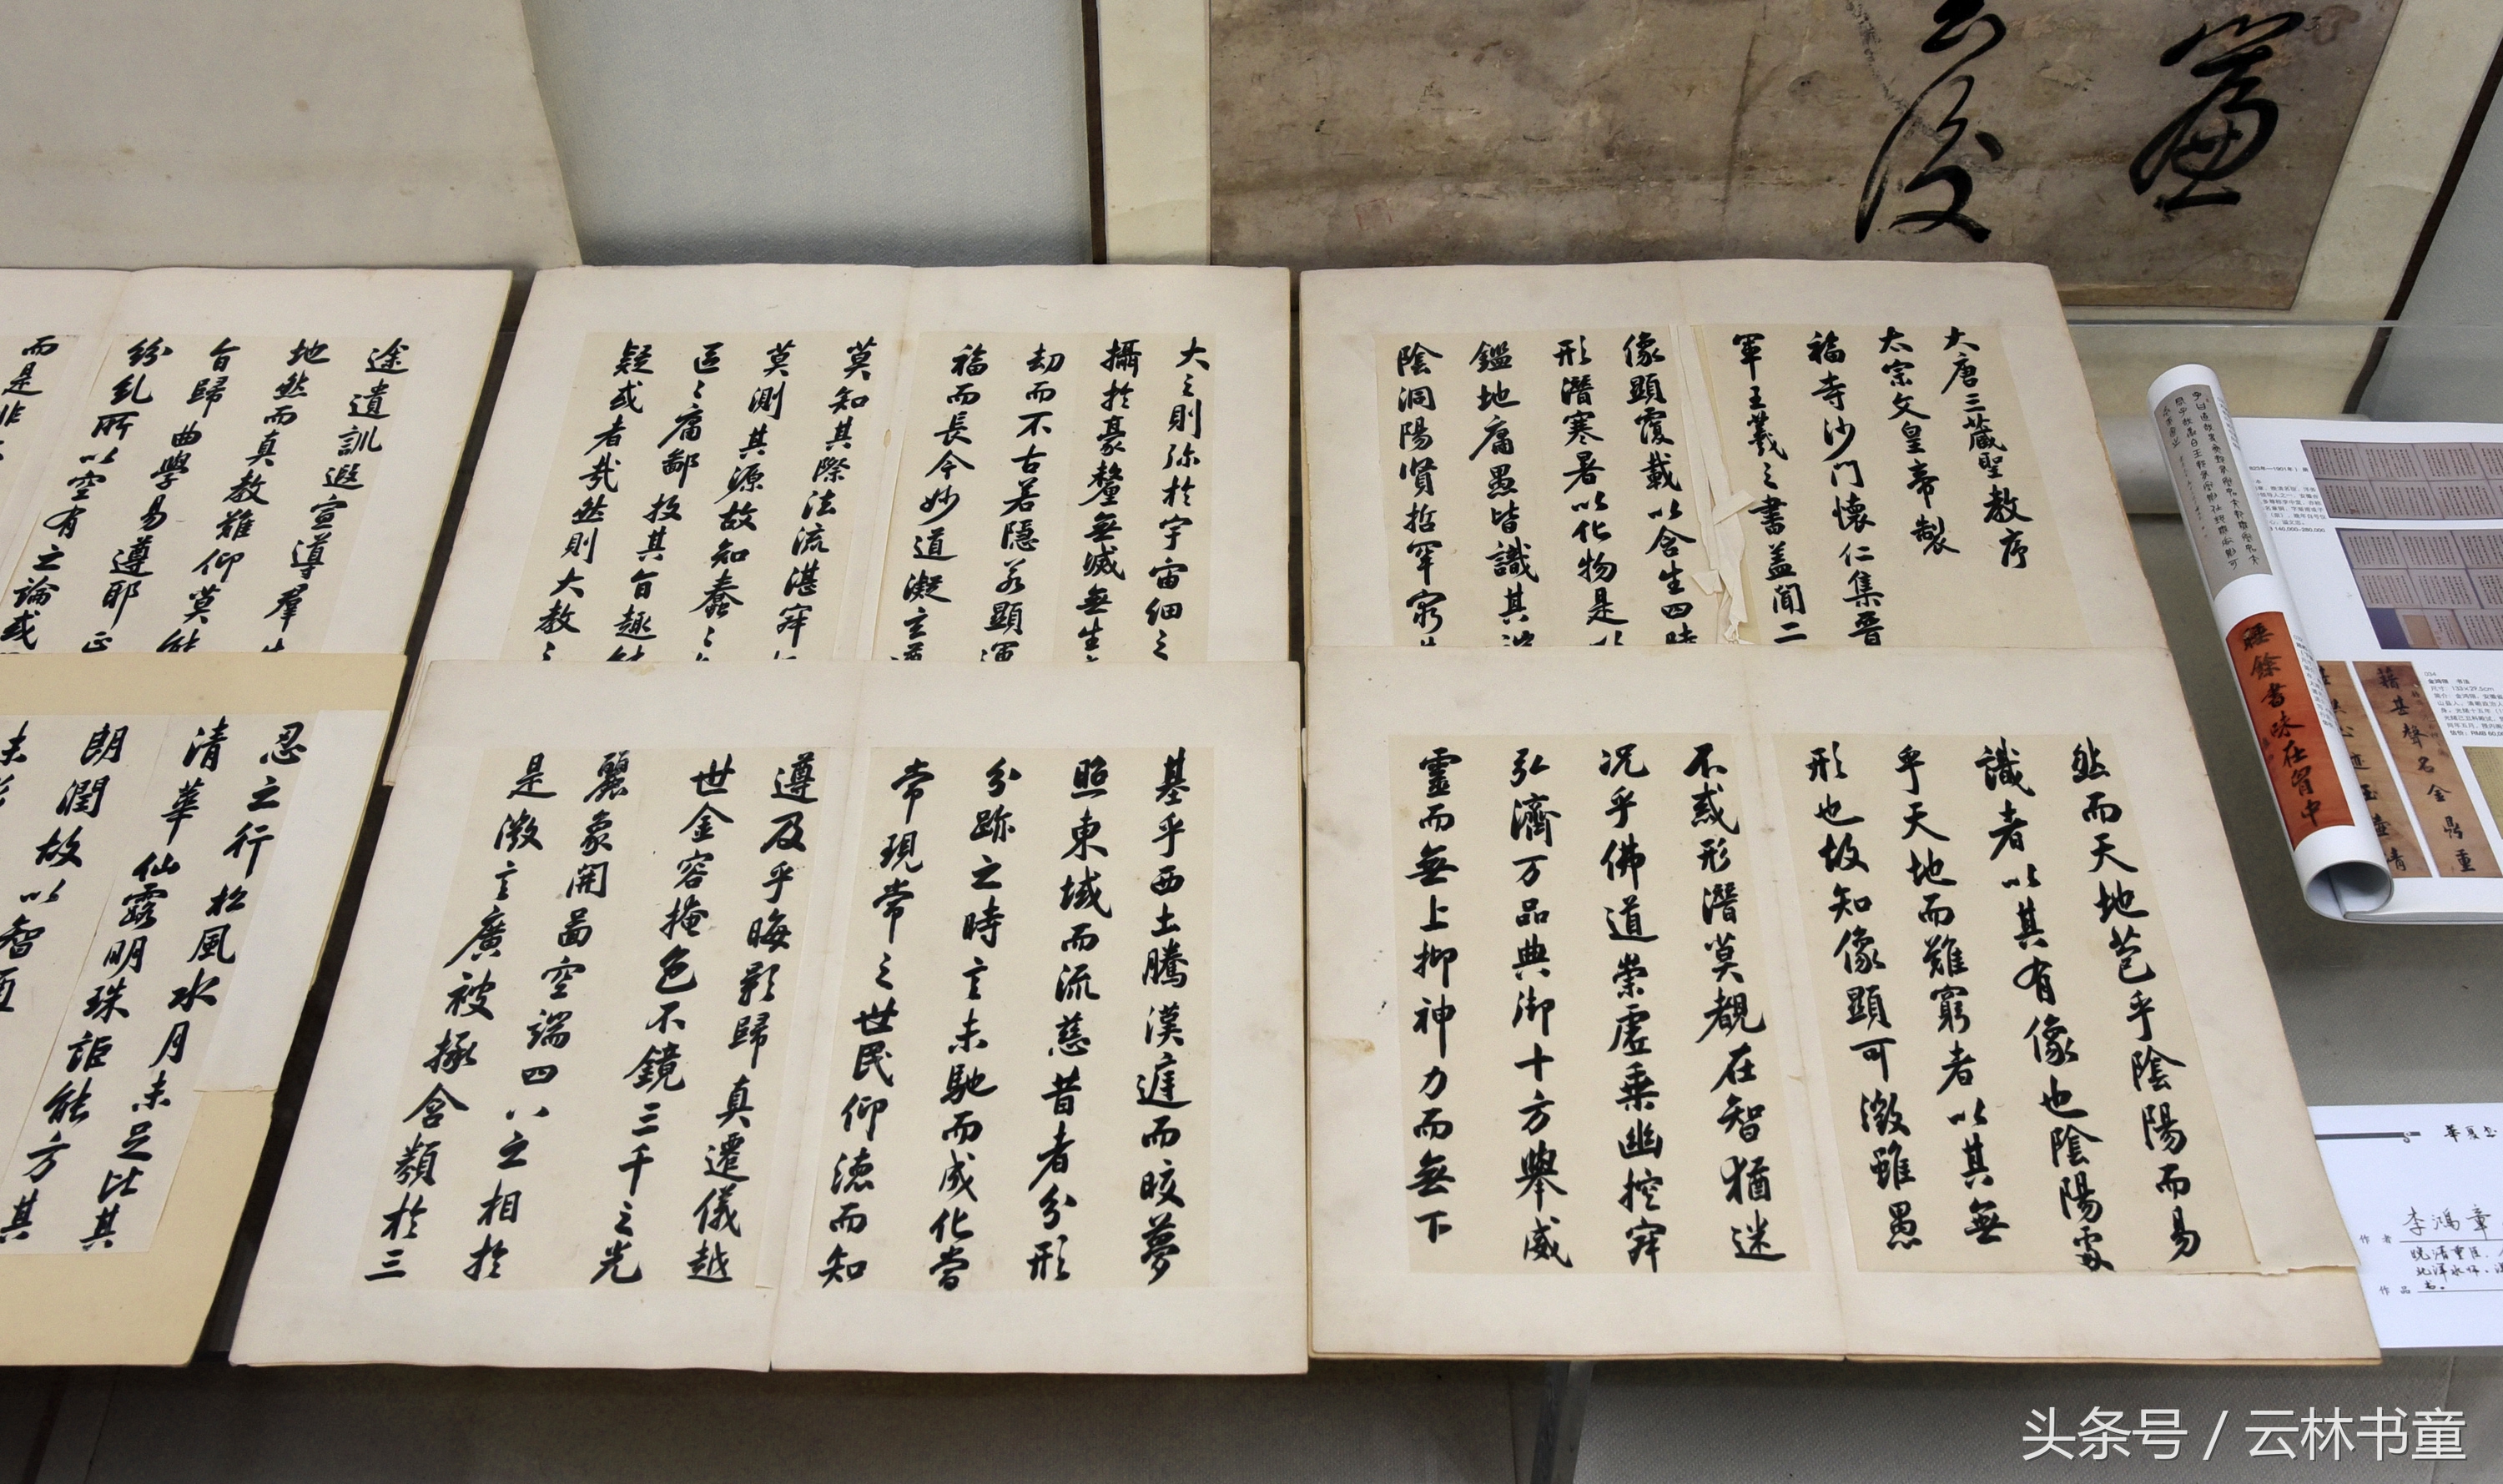 大唐三藏聖教序
太宗文皇帝製
福寺沙門懷仁集晉
軍王羲之書蓋聞二
像顯覆載以含生四時
形潛寒暑以化物是以
鑑地庸愚皆識其
陰洞陽賢哲罕窮
然而天地苞乎陰陽而易
識者以其有像也陰陽處
乎天地而難窮者以其無
形也故知像顯可徵雖愚
不惑形潛莫覩在智猶迷
況乎佛道崇虛乘幽控寂
弘濟万品典御十方舉威
靈而無上抑神力而無下
大之則弥於宇宙細之
攝於豪釐無滅無生
劫而不古若隱若顯運
福而長今妙道凝玄遵
莫知其際法流湛寂
莫測其源故知蠢々
區々庸鄙投其旨趣能
疑或者哉然則大教之
基乎西土騰漢庭而皎夢
照東域而流慈昔者分形
分跡之時言未馳而成化當
常現常之世民仰德而知
遵及乎晦影歸真遷儀越
世金容掩色不鏡三千之光
麗象開圖空端四八之相於
是微言廣被拯含類於三
途遺訓遐宣導羣生
地然而真教難仰莫能
旨歸曲學易遵耶正
紛糺所以空有之論或
而是非
忍之行松風水月未足比其
清華仙露明珠詎能方其
朗潤故以智
簾
後
腰餘書味在胷中
藉甚聲名金鼎重
034
李鴻章
作者
作品
头条号 / 云林书童